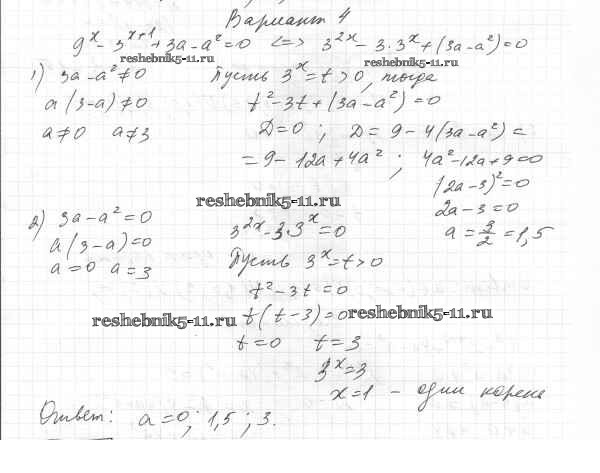 Вариант 4
9^x - 3^{x+1} + 3a - a² = 0 <=> 3^{2x} - 3·3^x + (3a - a²) = 0
reshebnik5-11.ru reshebnik5-11.ru
1) 3a - a² ≠ 0 Пусть 3^x = t > 0, тогда
a(3-a) ≠ 0 t² - 3t + (3a - a²) = 0
a ≠ 0 a ≠ 3 D = 0 ; D = 9 - 4(3a - a²) =
= 9 - 12a + 4a² ; 4a² - 12a + 9 = 0
(2a - 3)² = 0
reshebnik5-11.ru
2a - 3 = 0
2) 3a - a² = 0 3^{2x} - 3·3^x = 0 a = 3/2 = 1,5
a(3-a) = 0 Пусть 3^x = t > 0
a = 0 a = 3 t² - 3t = 0
reshebnik5-11.ru t(t - 3) = 0 reshebnik5-11.ru
t = 0 t = 3
3^x = 3
x = 1 - один корень
Ответ: a = 0; 1,5; 3.